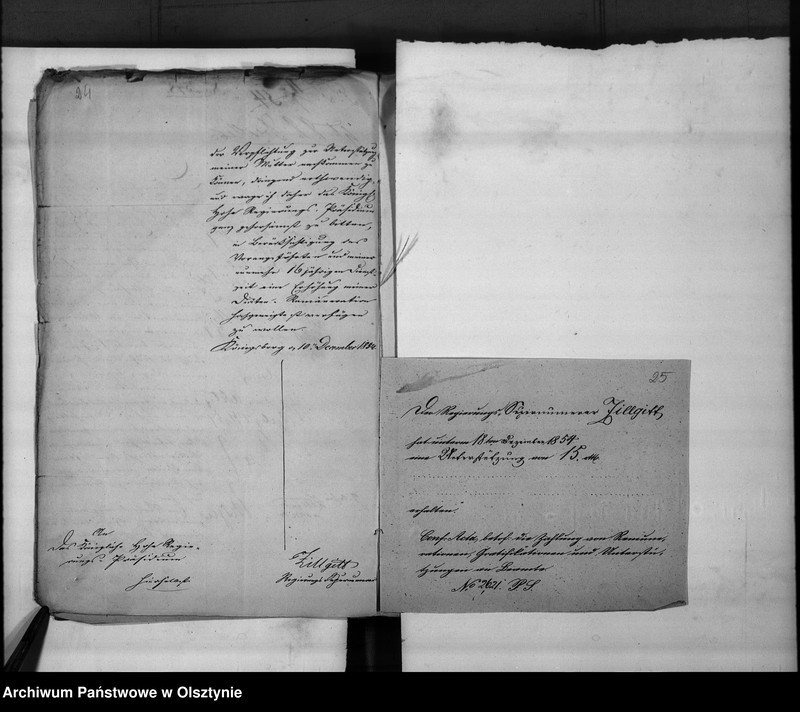 24
der Verpflichtung zur Unterstützung
meiner Mutter nachkommen zu
können, dringend nothwendig,
und wage ich daher das Königl.
Hohe Regierungs-Präsidium
ganz gehorsamst zu bitten,
in Berücksichtigung des
Vorangeführten und meiner
nunmehr 16 jährigen Dienst-
zeit eine Erhöhung meiner
Diäten-Remuneration
hochgeneigtest verfügen
zu wollen.
Königsberg 10. December 1854.
An
Das Königliche Hohe Regie-
rungs-Präsidium
hierselbst.
Zillgitt
Regierungs-Supernumerar
25
Der Regierungs-Supernumerar Zillgitt
hat unterm 18ten Dezember 1854
eine Unterstützung von 15
erhalten.
Conf. Acta, betref. die Zahlung von Remune-
rationen, Gratifikationen und Unterstü-
tzungen an Beamte
No 2621. P.S.
Archiwum Państwowe w Olsztynie